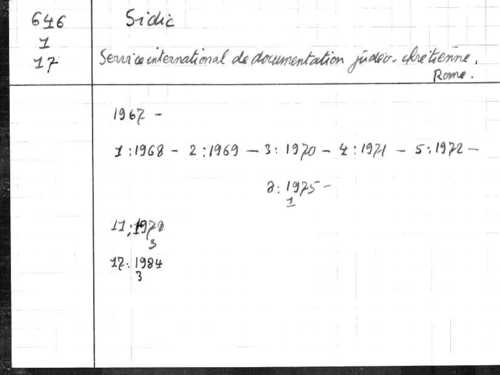 646
1
17
Sidic
Service international de documentation judéo-chrétienne.
Rome.
1967 -
1:1968 - 2:1969 - 3:1970 - 4:1971 - 5:1972 -
8:1975 -
1
11:1978
3
17:1984
3